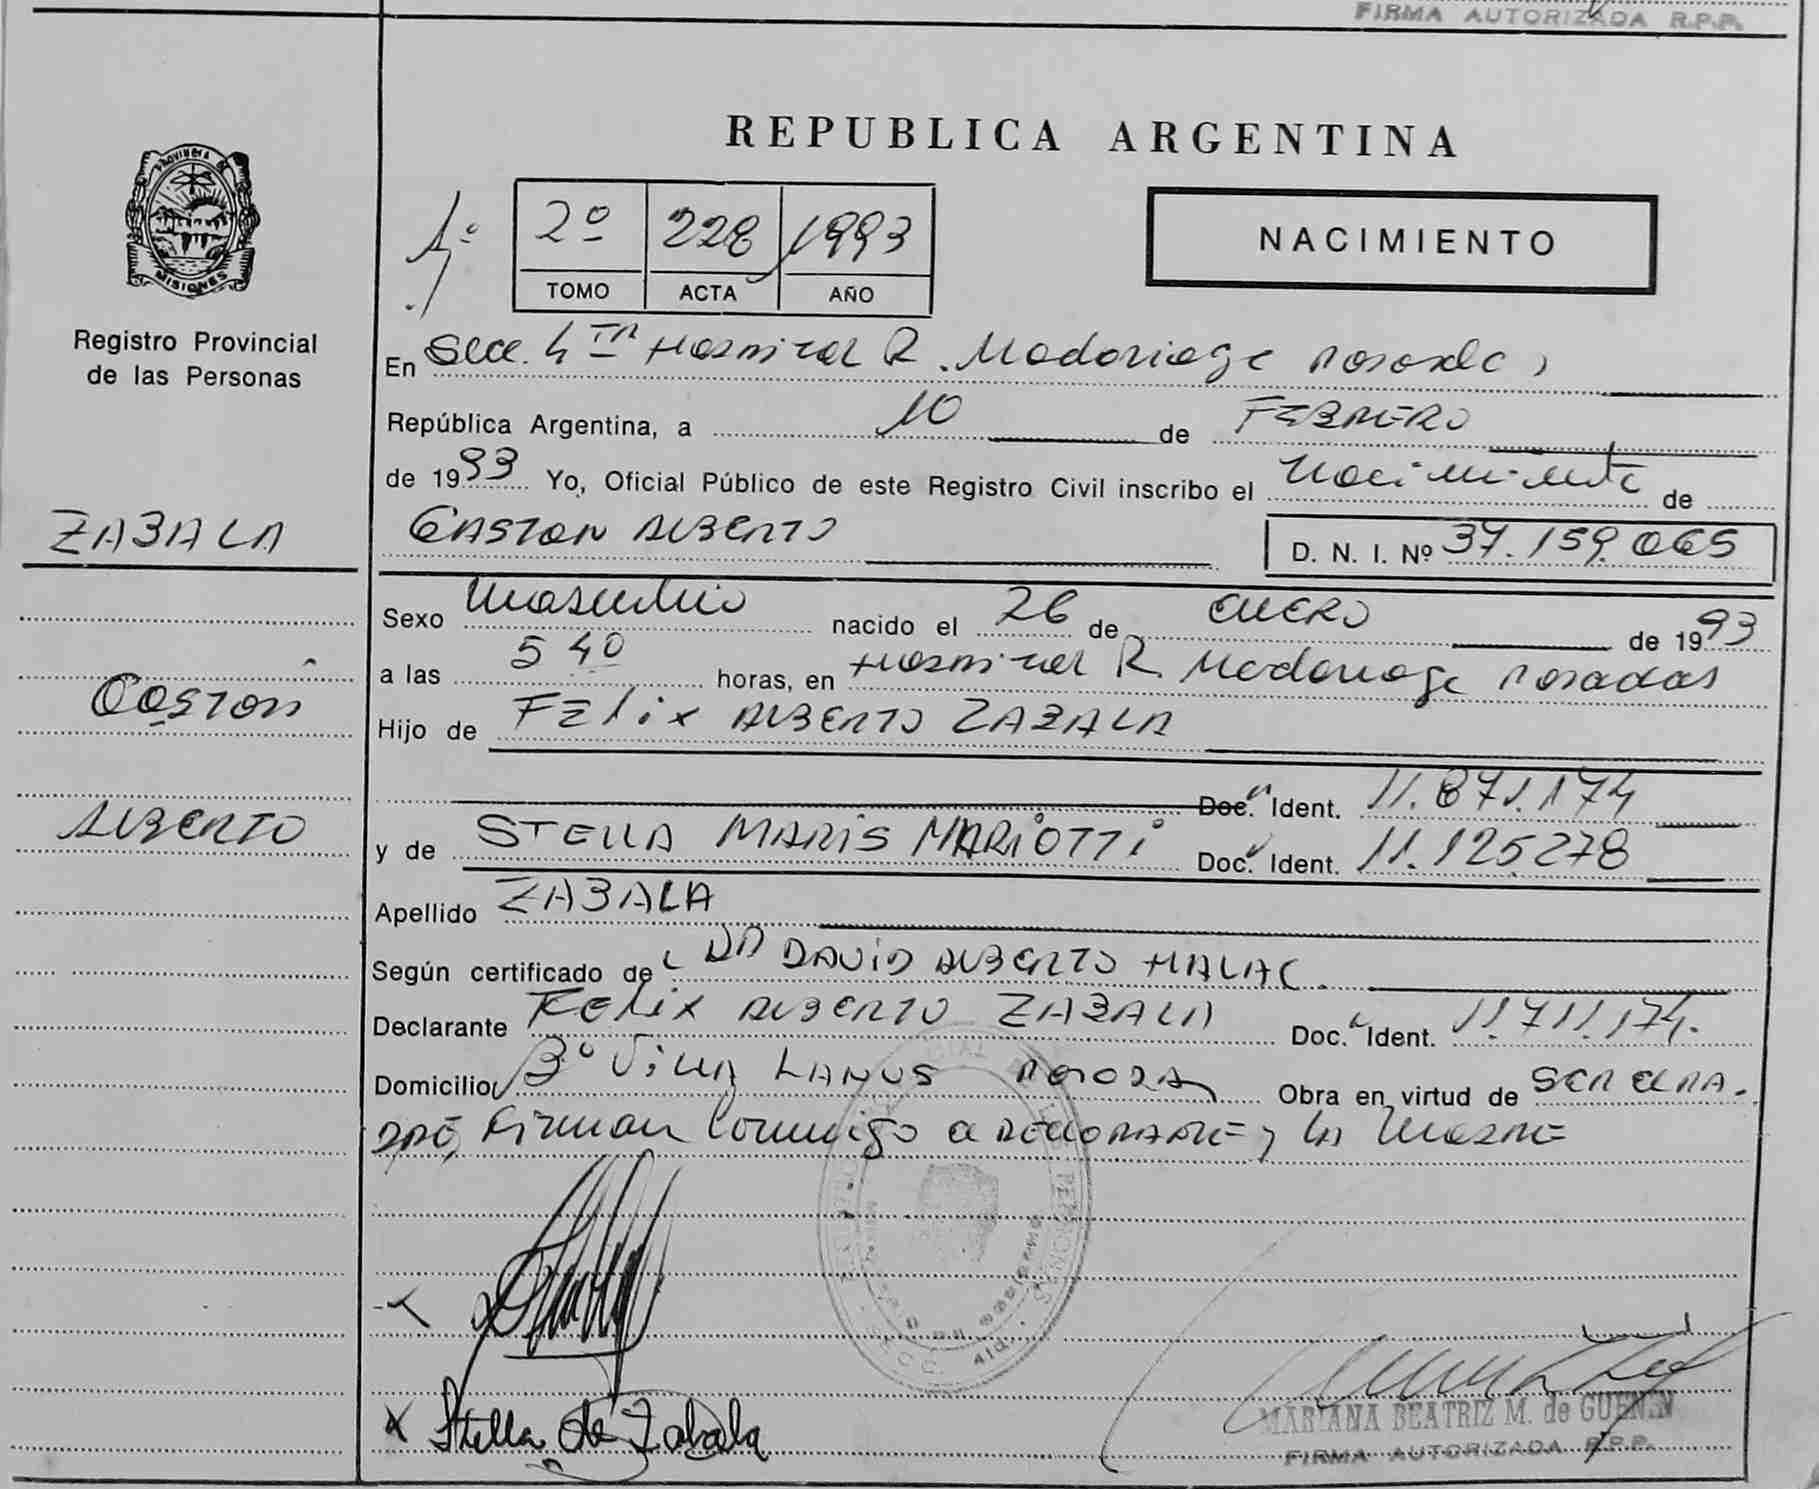 FIRMA AUTORIZADA R.P.P.
REPUBLICA ARGENTINA
PROVINCIA DE
MISIONES
Registro Provincial
de las Personas
1º 2º 228 1993
TOMO ACTA AÑO
NACIMIENTO
En Secc. 4ta Hospital R. Madariaga Posadas,
República Argentina, a 10 de FEBRERO
de 1993 Yo, Oficial Público de este Registro Civil inscribo el Nacimiento de
ZABALA
GASTON ALBERTO D. N. I. Nº 37.159.065
Sexo Masculino nacido el 26 de ENERO de 1993
a las 5 40 horas, en Hospital R. Madariaga Posadas
Gaston
Hijo de Felix ALBERTO ZABALA
Doc. Ident. 11.871.174
ALBERTO
y de STELLA MARIS MARIOTTI Doc. Ident. 11.125278
Apellido ZABALA
Según certificado de DR DAVID ALBERTO HALAC.
Declarante Felix ALBERTO ZABALA Doc. Ident. 11.711.174.
Domicilio Bº Villa LANUS Posadas Obra en virtud de SER EL PA.
DRE, Firman Conmigo el DECLARANTE y la MADRE
Stella de Zabala
MARIANA BEATRIZ M. de GUENIN
FIRMA AUTORIZADA R.P.P.